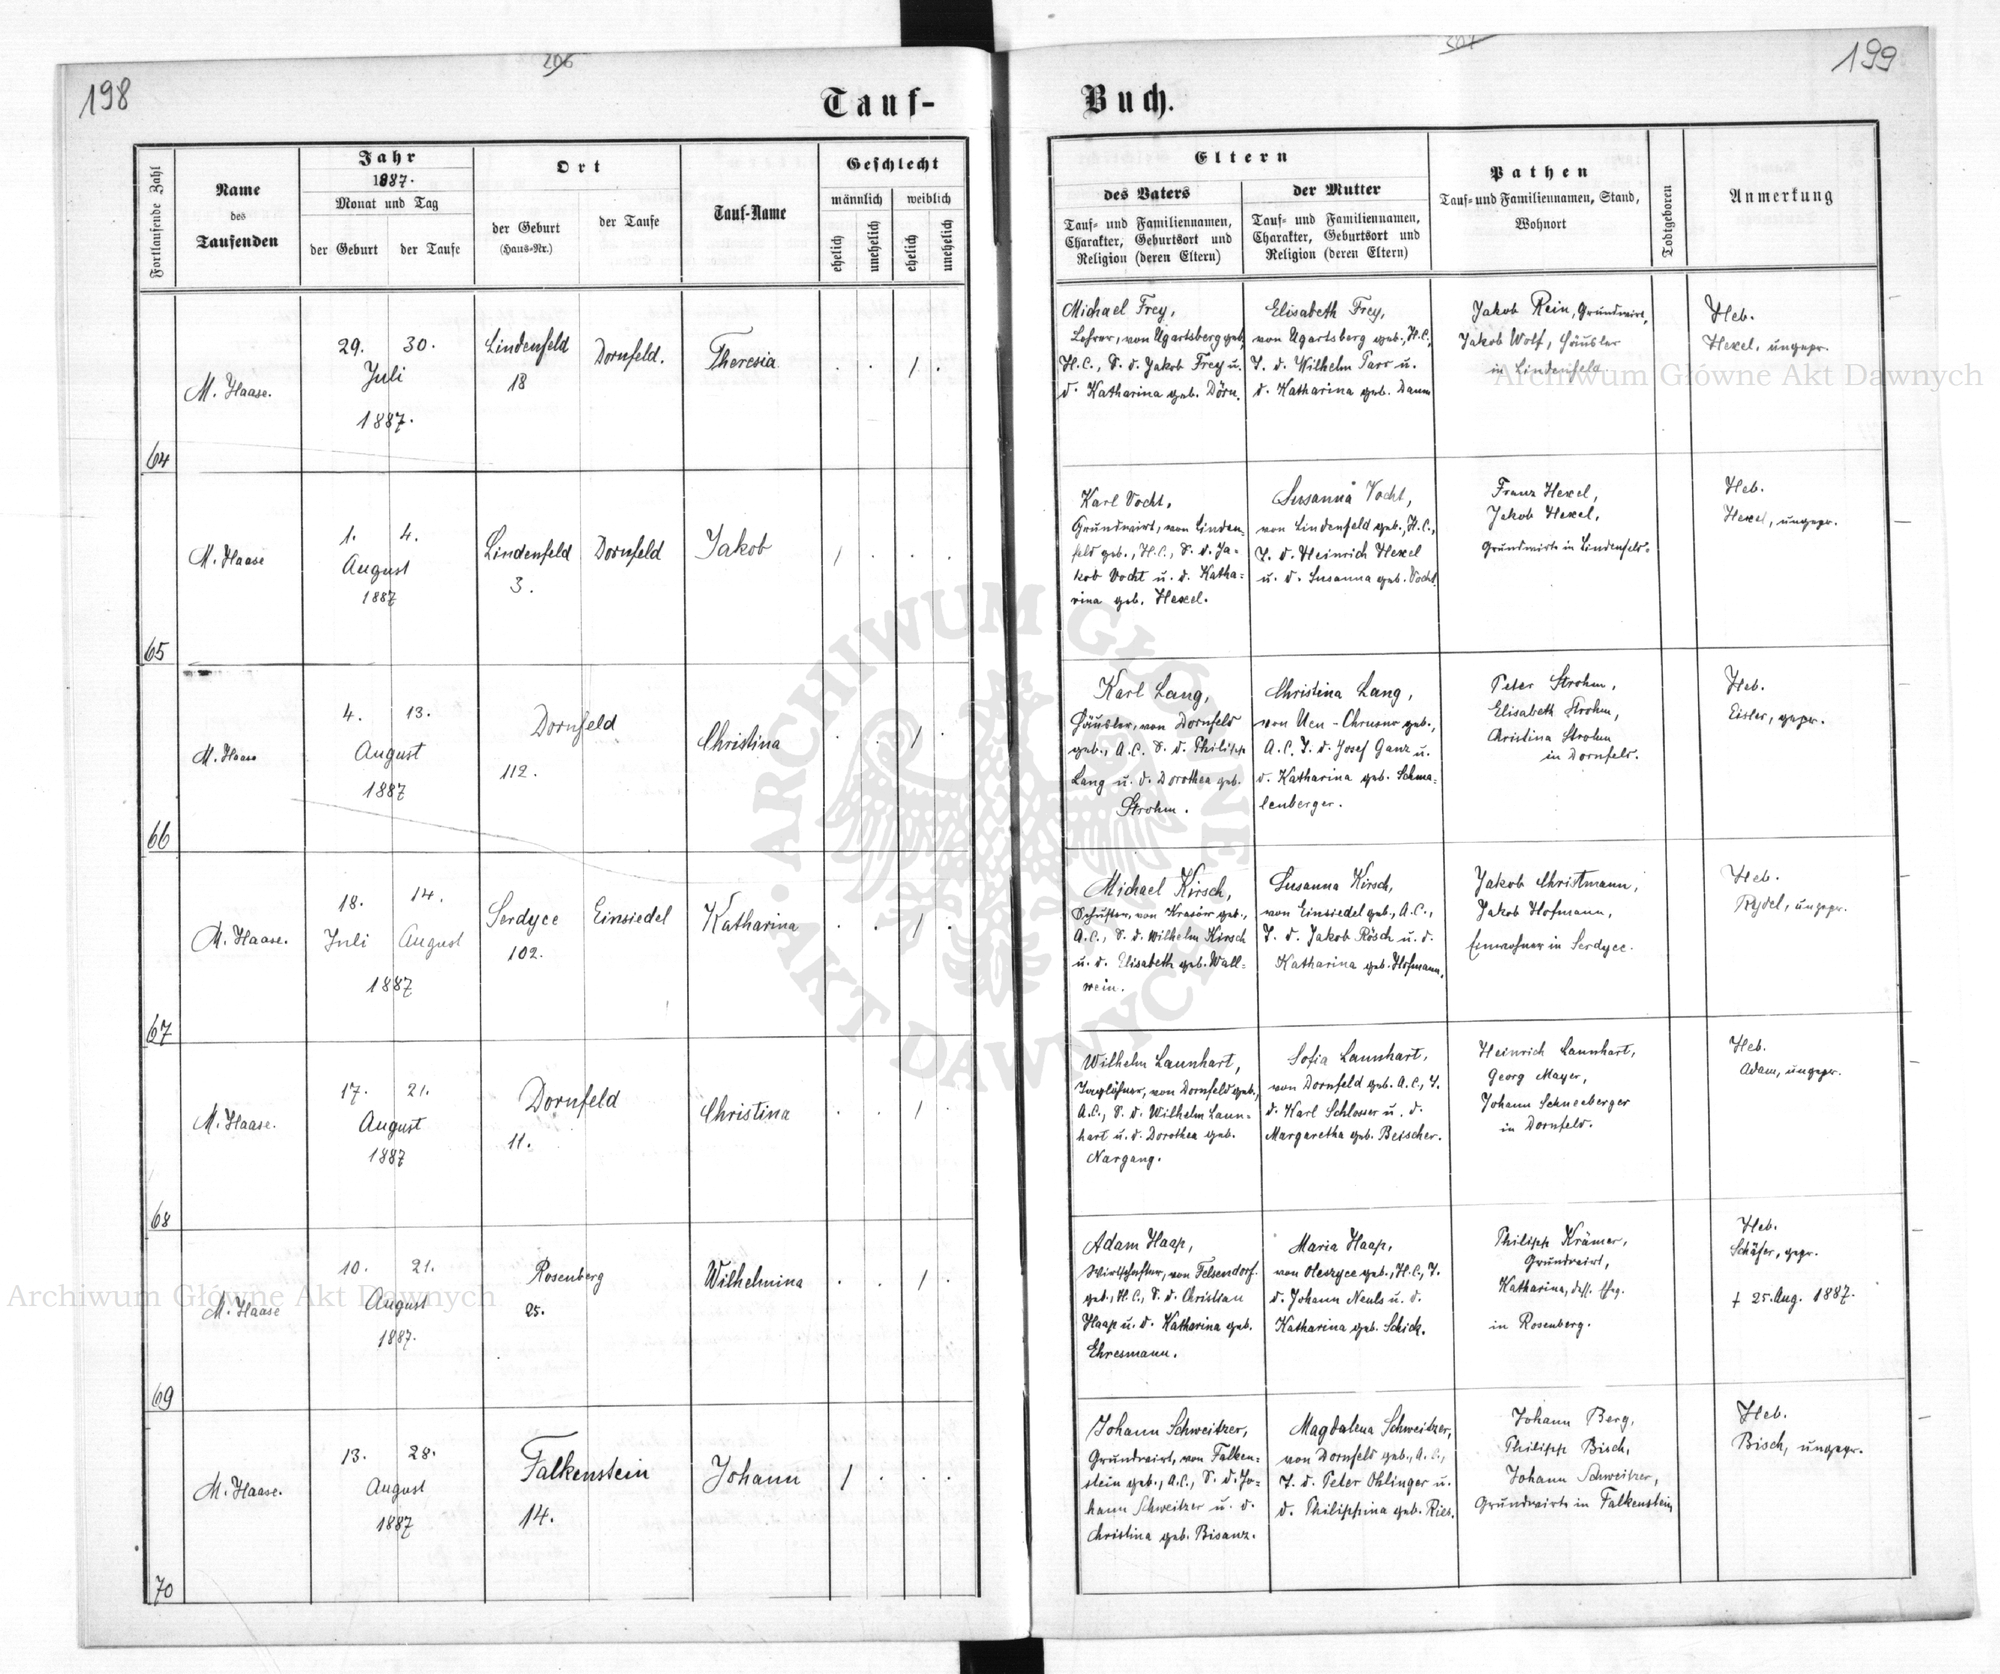 198
206
Tauf-
Fortlaufende Zahl
Name
des
Taufenden
Jahr
1887.
Monat und Tag
der Geburt
der Taufe
Ort
der Geburt
(Haus-Nr.)
der Taufe
Tauf-Name
Geschlecht
männlich
weiblich
ehelich
unehelich
ehelich
unehelich
64
M. Haase.
29. 30.
Juli
1887.
Lindenfeld
18
Dornfeld.
Theresia
. . / .
65
M. Haase
1. 4.
August
1887
Lindenfeld
3.
Dornfeld
Jakob
/ . . .
66
M. Haase
4. 13.
August
1887
Dornfeld
112.
Christina
. . / .
67
M. Haase.
18. 14.
Juli August
1887
Serdyce
102.
Einsiedel
Katharina
. . / .
68
M. Haase.
17. 21.
August
1887
Dornfeld
11.
Christina
. . / .
69
M. Haase
10. 21.
August
1887.
Rosenberg
25.
Wilhelmina
. . / .
70
M. Haase.
13. 28.
August
1887
Falkenstein
14.
Johann
/ . . .
199
Buch.
Eltern
des Vaters
Tauf- und Familiennamen,
Charakter, Geburtsort und
Religion (deren Eltern)
der Mutter
Tauf- und Familiennamen,
Charakter, Geburtsort und
Religion (deren Eltern)
Pathen
Tauf- und Familiennamen, Stand,
Wohnort
Todtgeboren
Anmerkung
Michael Frey,
Lehrer, von Ugartsberg geb.,
H.C., S. d. Jakob Frey u.
d. Katharina geb. Dörn.
Elisabeth Frey,
von Ugartsberg geb., H.C.,
T. d. Wilhelm Parr u.
d. Katharina geb. Daum
Jakob Rein, Grundwirt,
Jakob Wolf, Häusler
in Lindenfeld
Heb.
Hexel, ungepr.
Karl Vocht,
Grundwirt, von Linden-
feld geb., H.C., S. d. Ja-
kob Vocht u. d. Katha-
rina geb. Hexel.
Susanna Vocht,
von Lindenfeld geb., H.C.,
T. d. Heinrich Hexel
u. d. Susanna geb. Vocht.
Franz Hexel,
Jakob Hexel,
Grundwirte in Lindenfeld.
Heb.
Hexel, ungepr.
Karl Lang,
Häusler, von Dornfeld
geb., A.C. S. d. Philipp
Lang u. d. Dorothea geb.
Strohm.
Christina Lang,
von Neu-Chrusno geb.,
A.C. T. d. Josef Ganz u.
d. Katharina geb. Schma-
lenberger.
Peter Strohm,
Elisabeth Strohm,
Christina Strohm
in Dornfeld.
Heb.
Eisler, gepr.
Michael Kirsch,
Schuster, von Krasów geb.,
A.C., S. d. Wilhelm Kirsch
u. d. Elisabeth geb. Wall-
wein.
Susanna Kirsch,
von Einsiedel geb., A.C.,
T. d. Jakob Rösch u. d.
Katharina geb. Hofmann.
Jakob Christmann,
Jakob Hofmann,
Einwohner in Serdyce.
Heb.
ungepr.
Wilhelm Launhart,
Taglöhner, von Dornfeld geb.,
A.C., S. d. Wilhelm Laun-
hart u. d. Dorothea geb.
Nargang.
Sofia Launhart,
von Dornfeld geb. A.C., T.
d. Karl Schlosser u. d.
Margaretha geb. Beischer.
Heinrich Launhart,
Georg Mayer,
Johann Schneeberger
in Dornfeld.
Heb.
Adam, ungepr.
Adam Haap,
Wirtschafter, von Felsendorf
geb., H.C., S. d. Christian
Haap u. d. Katharina geb.
Ehresmann.
Maria Haap,
von Oleszyce geb., H.C., T.
d. Johann Neuls u. d.
Katharina geb. Schick.
Philipp Krämer,
Grundwirt,
Katharina, dess. Eheg.
in Rosenberg.
Heb.
Schäfer, gepr.
† 25. Aug. 1887.
Johann Schweitzer,
Grundwirt, von Falken-
stein geb., A.C., S. d. Jo-
hann Schweitzer u. d.
Christina geb. Bisanz.
Magdalena Schweitzer,
von Dornfeld geb., A.C.,
T. d. Peter Ohlinger u.
d. Philippina geb. Ries.
Johann Berg,
Philipp Bisch,
Johann Schweitzer,
Grundwirte in Falkenstein
Heb.
Bisch, ungepr.
Archiwum Główne Akt Dawnych
Archiwum Główne Akt Dawnych
ARCHIWUM GŁÓWNE
AKT DAWNYCH